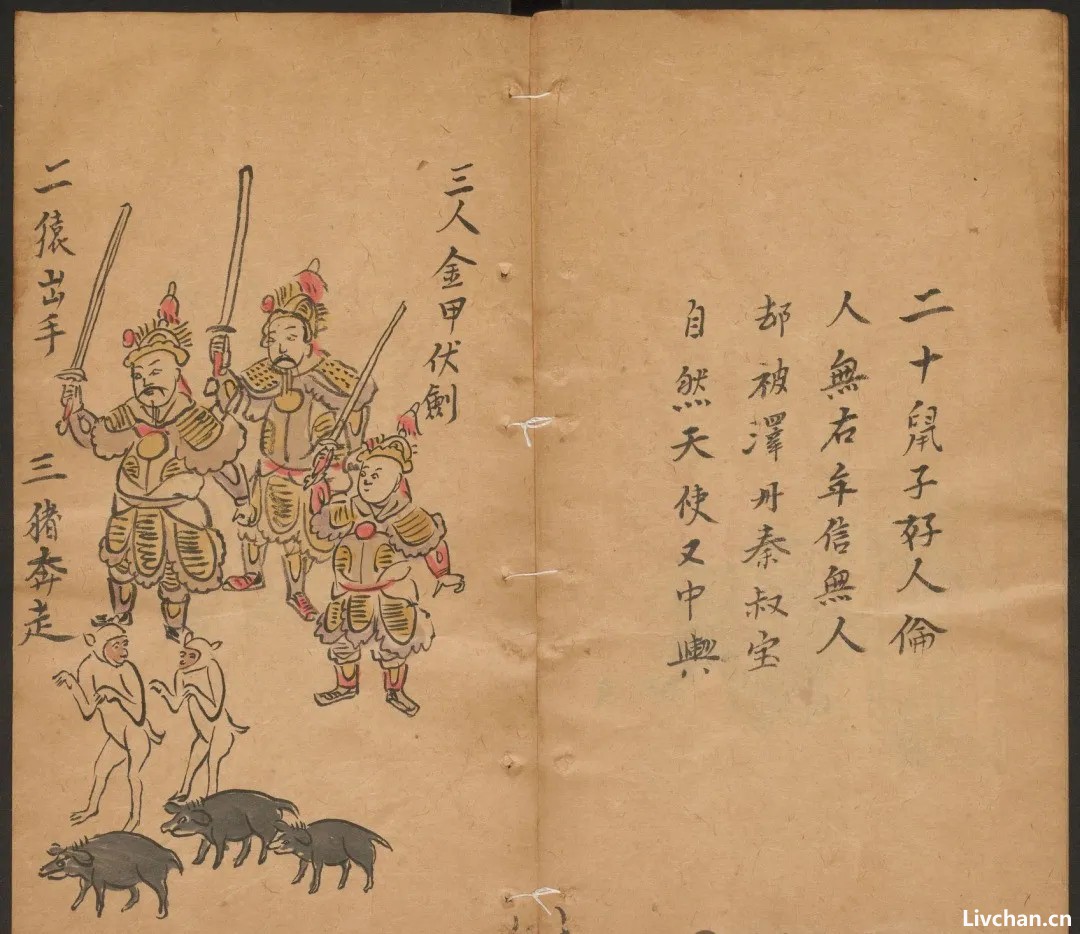 二十鼠子好人倫
人無右年信無人
却被澤丹秦叔宝
自然天使又中興
三人金甲伏劍
二猿出手
三猪奔走
Livchan.cn